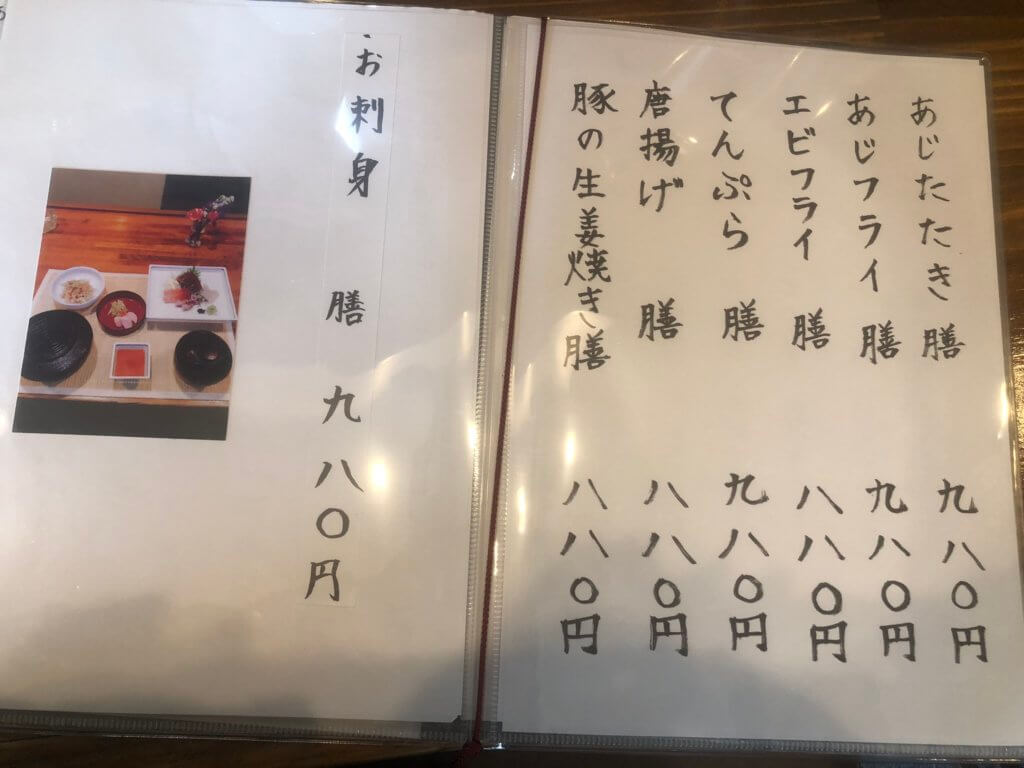 あじたたき膳 九八〇円
あじフライ膳 九八〇円
エビフライ膳 八八〇円
てんぷら膳 九八〇円
唐揚げ膳 八八〇円
豚の生姜焼き膳 八八〇円
お刺身膳 九八〇円